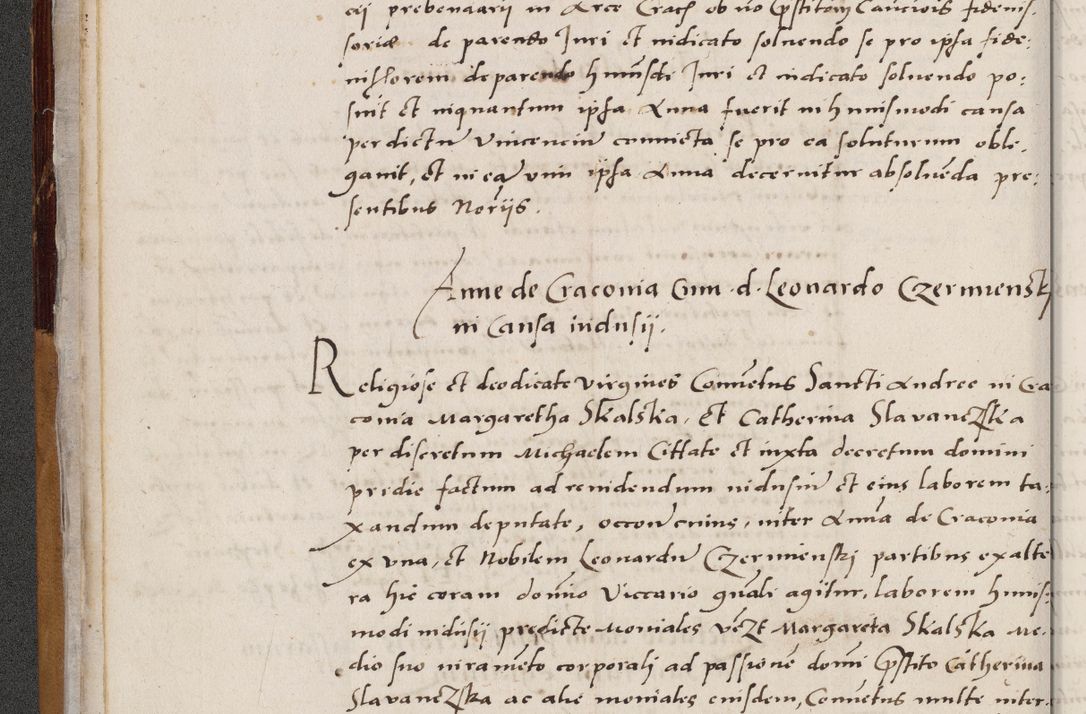 cij prebendarij in Arce Crac̄ ob nō p̄stitom̄ Caucīois fideius-
soriae de parendo Juri et iudicato soluendo se pro ipsa fide-
iussorem de parendo hmōi Juri et iudicato soluendo po-
suit et inquantum ipsa Anna fuerit in huiusmodi causa
per dictū Vincenciū conuicta se pro ea soluturum oble-
gauit, et in eaū ipsa Anna decernitur absoluēda pre-
sentibus Norijs.
Anne de Craconia Cum d. Leonardo Czermiensky
in Causa indusij.
Religiose et deodicate virgines Conuētus Sancti Andree in Cra
conia Margaretha Skalska, et Catherina Slavanczska
per discretum Michaelem Cittate et iuxta decretum domini
pridie factum ad reuidendum indusiū et eius laborem ta-
xandum deputate, occoīe cuius, inter Annā de Craconia
ex vna, et Nobilem Leonardū Czermienski partibus ex alte
ra hic coram domīo Viccario gn̄ali agitur, laborem huius-
modi indusij predicte Moniales vēzt Margareta Skalska Me-
dio suo iuramēto corporali ad passionē domī p̄stito Catherina
Slavanczska ac alie moniales eiusdem Conuētus multe inter-